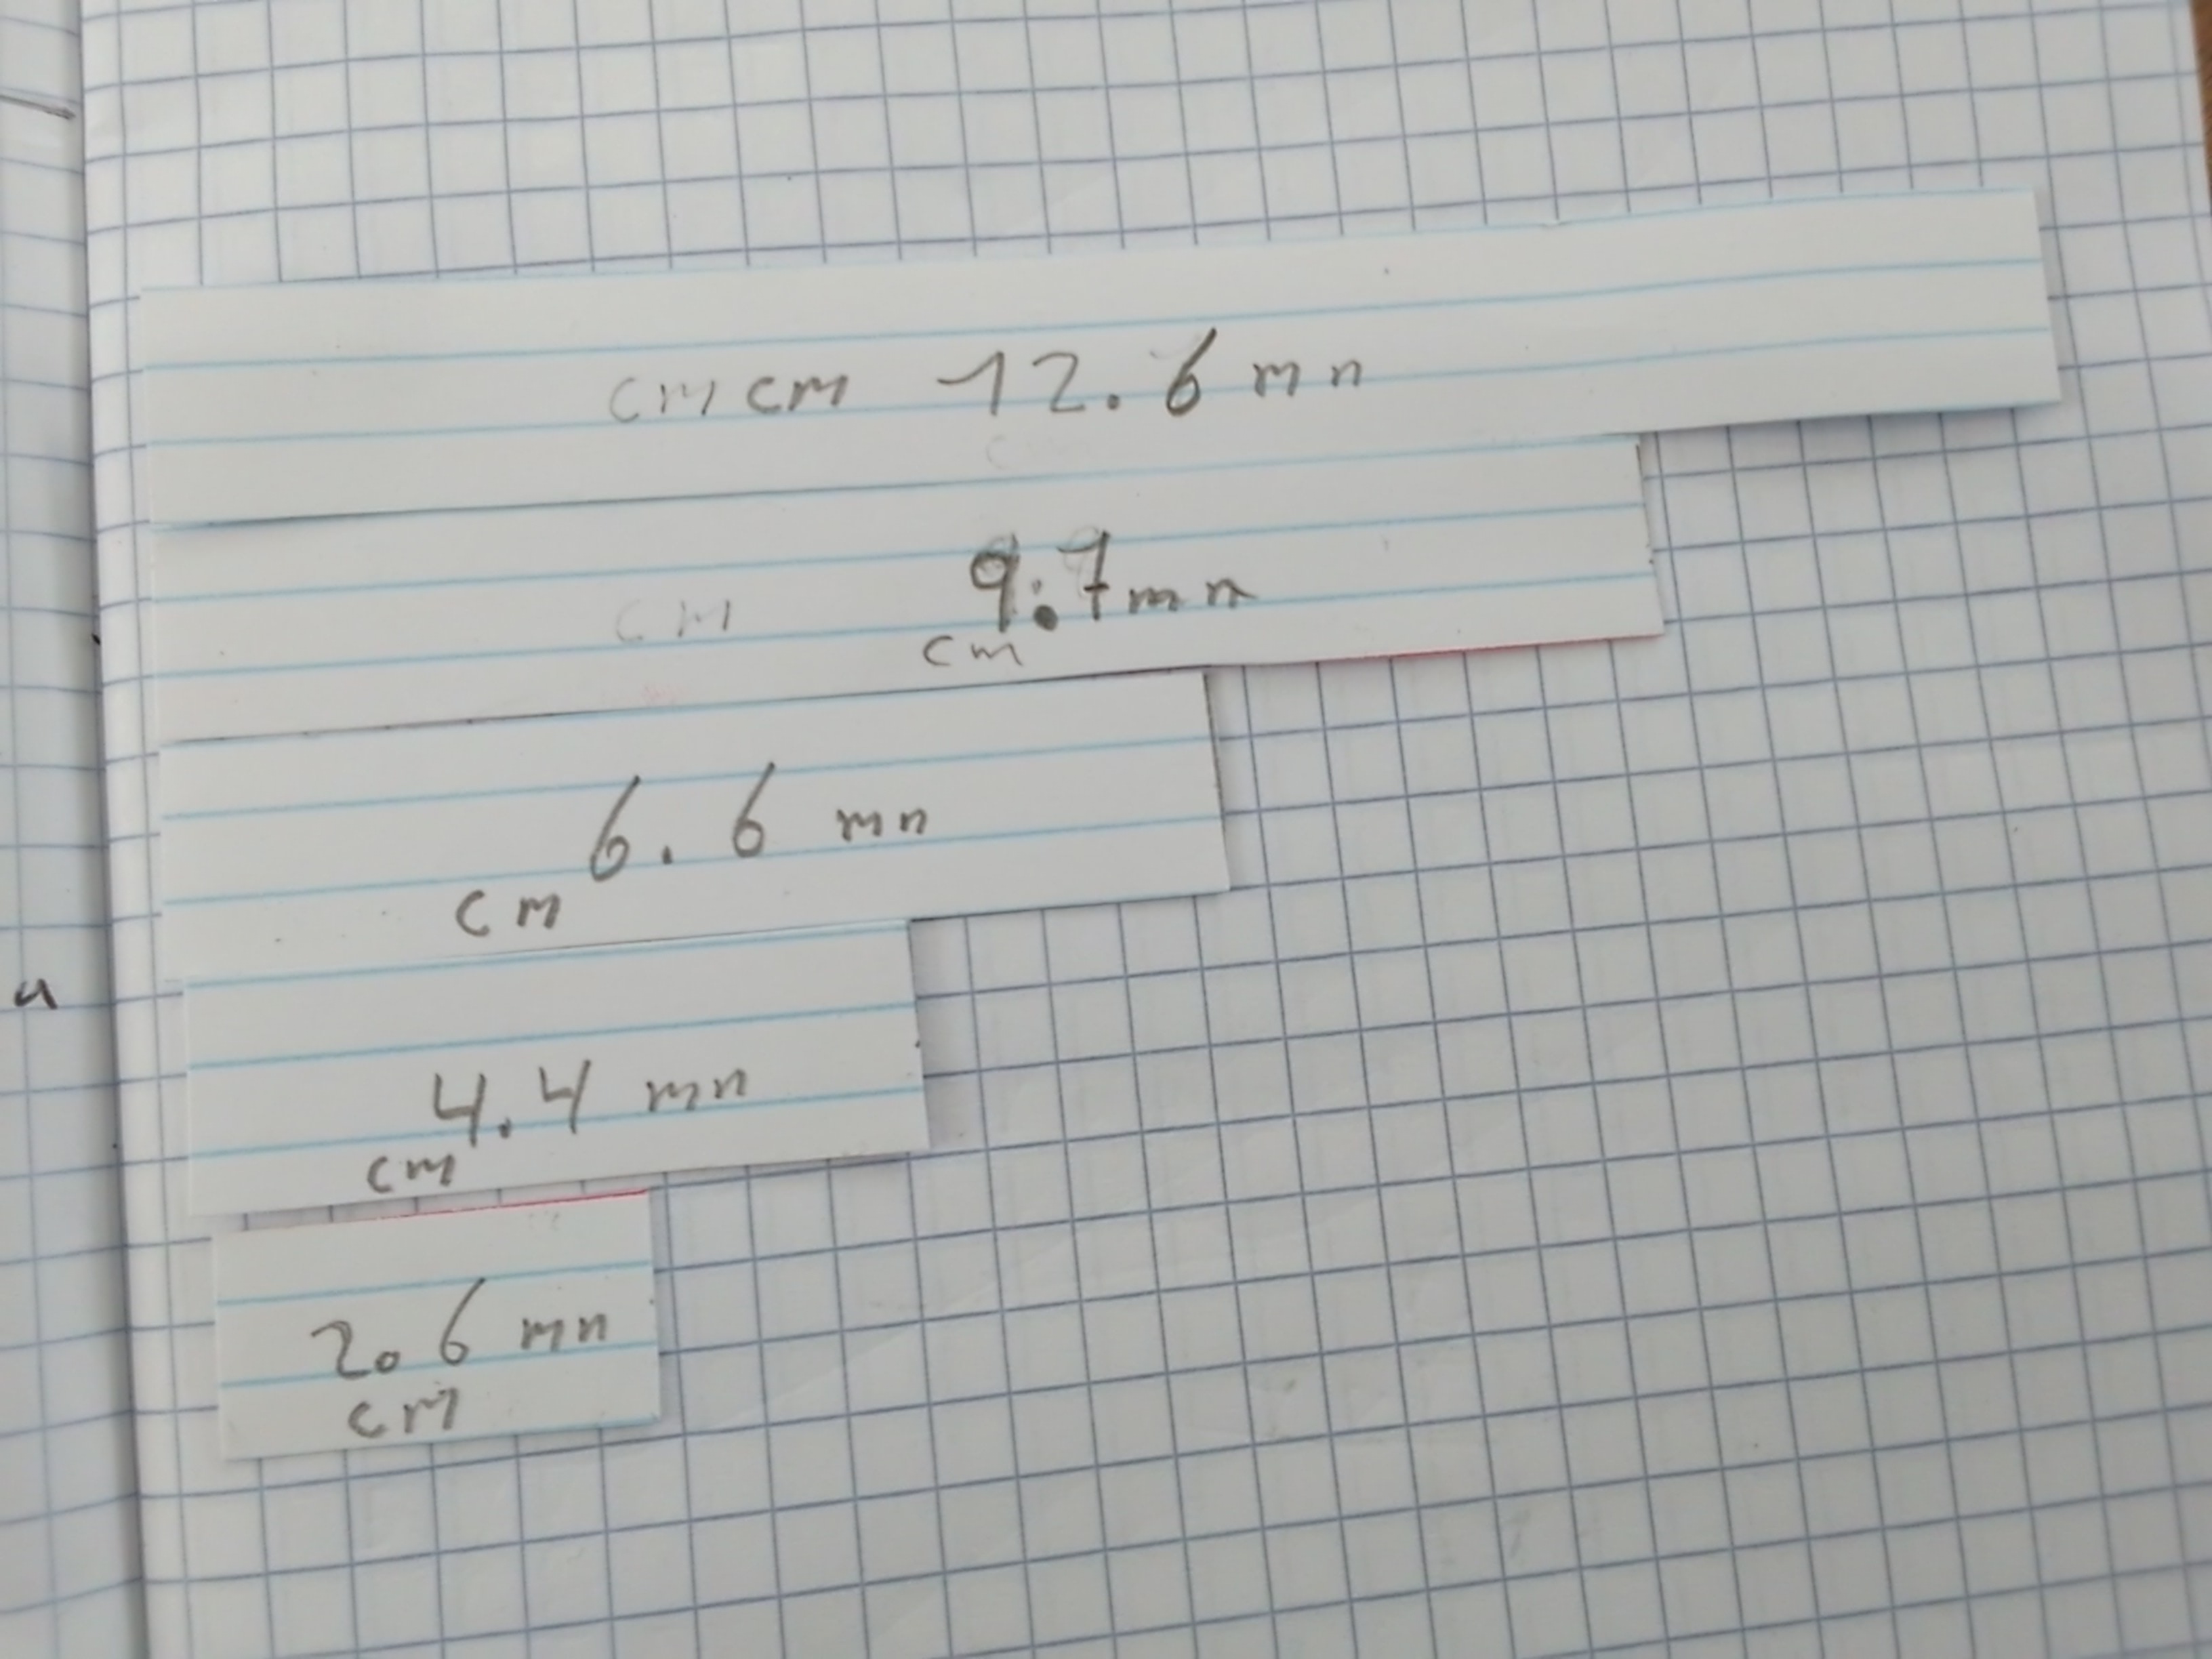 cm cm 12.6 mn
cm 9.7 mn
cm
6.6 mn
cm
4.4 mn
cm
2.6 mn
cm
u